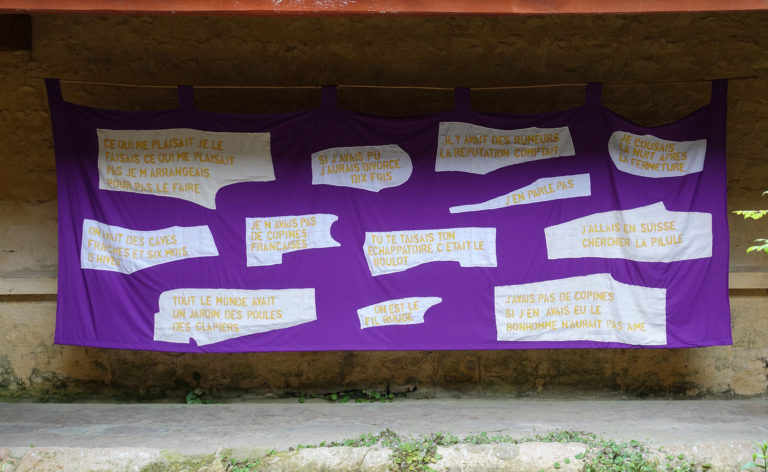 CE QUI ME PLAISAIT JE LE
FAISAIS CE QUI ME PLAISAIT
PAS JE M ARRANGEAIS
POUR PAS LE FAIRE
SI J'AVAIS PU
J'AURAIS DIVORCÉ
DIX FOIS
IL Y AVAIT DES RUMEURS
LA RÉPUTATION COMPTAIT
JE COUSAIS
LA NUIT APRÈS
LA FERMETURE
J'EN PARLE PAS
ON AVAIT DES CAVES
FRAÎCHES ET SIX MOIS
D HIVER
JE N AVAIS PAS
DE COPINES
FRANÇAISES
TU TE TAISAIS TON
ÉCHAPPATOIRE C ÉTAIT LE
BOULOT
J'ALLAIS EN SUISSE
CHERCHER LA PILULE
TOUT LE MONDE AVAIT
UN JARDIN DES POULES
DES CLAPIERS
ON EST LE
FIL ROUGE
J'AVAIS PAS DE COPINES
SI J'EN AVAIS EU LE
BONHOMME N'AURAIT PAS AIMÉ